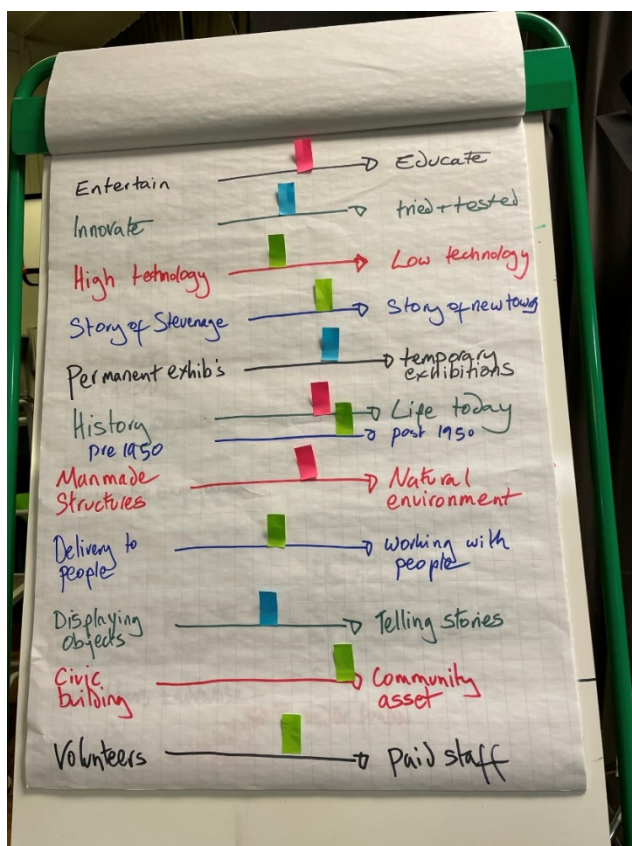 Entertain Educate
Innovate tried + tested
High technology Low technology
Story of Stevenage Story of new towns
Permanent exhib's temporary
exhibitions
History Life today
pre 1950 post 1950
Manmade Natural
Structures environment
Delivery to working with
people people
Displaying Telling stories
objects
Civic Community
building asset
Volunteers paid staff